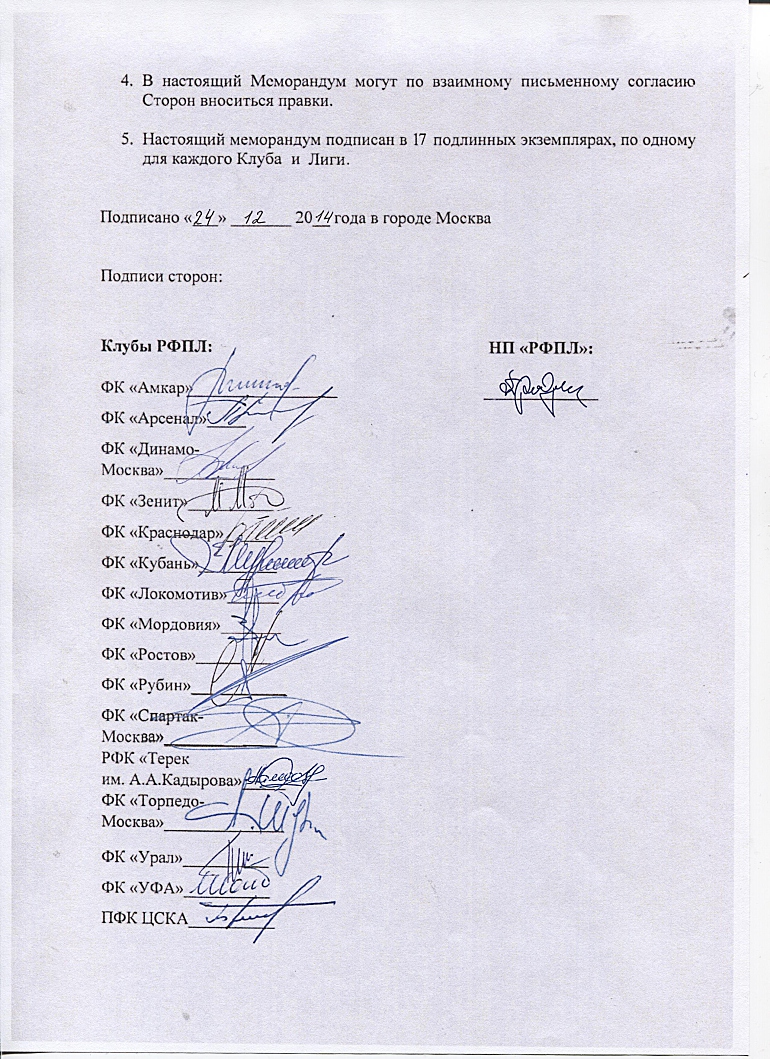 4. В настоящий Меморандум могут по взаимному письменному согласию
Сторон вноситься правки.
5. Настоящий меморандум подписан в 17 подлинных экземплярах, по одному
для каждого Клуба и Лиги.
Подписано «24» 12 2014 года в городе Москва
Подписи сторон:
Клубы РФПЛ:
ФК «Амкар»
ФК «Арсенал»
ФК «Динамо-
Москва»
ФК «Зенит»
ФК «Краснодар»
ФК «Кубань»
ФК «Локомотив»
ФК «Мордовия»
ФК «Ростов»
ФК «Рубин»
ФК «Спартак-
Москва»
РФК «Терек
им. А.А.Кадырова»
ФК «Торпедо-
Москва»
ФК «Урал»
ФК «УФА»
ПФК ЦСКА
НП «РФПЛ»: